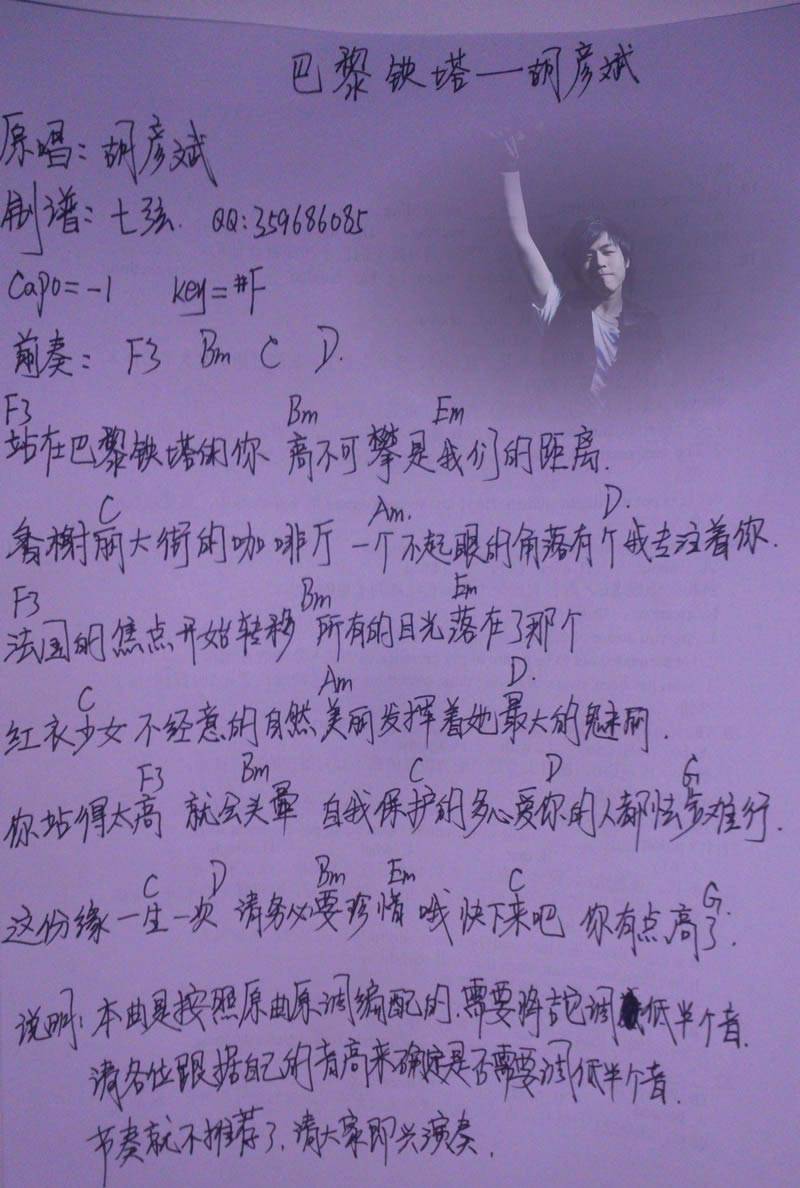 巴黎铁塔—胡彦斌
原唱：胡彦斌
制谱：七弦. QQ:359686085
Capo=-1 key=#F
前奏：F3 Bm C D.
F3 Bm Em
站在巴黎铁塔的你 高不可攀是我们的距离.
C Am. D.
香榭丽大街的咖啡厅 一个不起眼的角落有个我专注着你.
F3 Bm Em
法国的焦点开始转移 所有的目光落在了那个
C Am D.
红衣少女不经意的自然美丽发挥着她最大的魅丽.
F3 Bm C D G
你站得太高 就会头晕 自我保护的多心爱你的人都怯步难行.
C D Bm Em C G
这份缘一生一次 请务必要珍惜 哦快下来吧 你有点高了.
说明：本曲是按照原曲原调编配的.需要将吉它调低半个音.
请各位跟据自己的音高来确定是否需要调低半个音.
节奏就不推荐了.请大家即兴演奏.